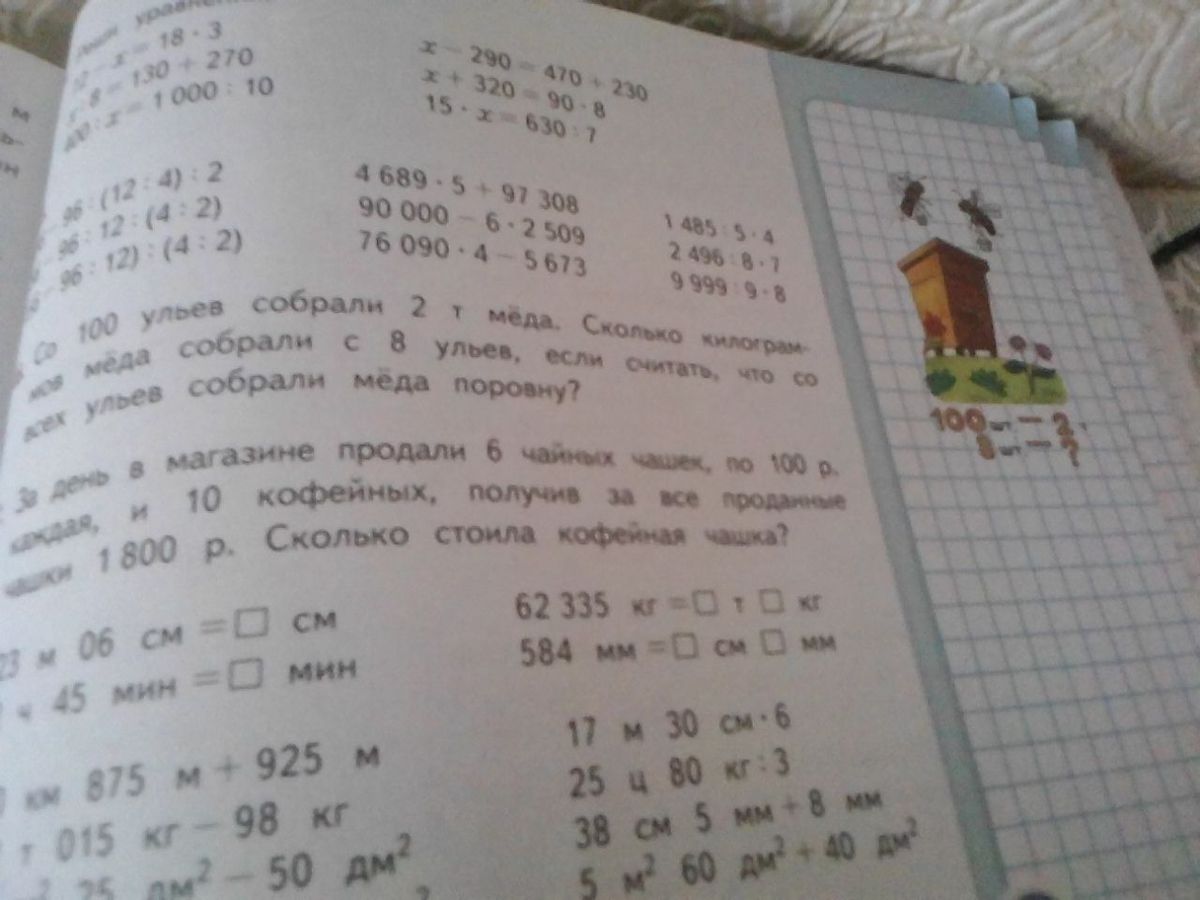 уравнения
− x = 18 · 3
x · 8 = 130 + 270
400 : x = 1 000 : 10
x − 290 = 470 + 230
x + 320 = 90 · 8
15 · x = 630 : 7
96 : (12 : 4) : 2
96 : 12 : (4 : 2)
96 : 12) : (4 : 2)
4 689 · 5 + 97 308
90 000 − 6 · 2 509
76 090 · 4 − 5 673
1 485 : 5 · 4
2 496 : 8 · 7
9 999 : 9 · 8
Со 100 ульев собрали 2 т мёда. Сколько килограм-
мов мёда собрали с 8 ульев, если считать, что со
всех ульев собрали мёда поровну?
100 шт — 2
8 шт — ?
За день в магазине продали 6 чайных чашек, по 100 р.
каждая, и 10 кофейных, получив за все проданные
чашки 1 800 р. Сколько стоила кофейная чашка?
23 м 06 см = □ см
ч 45 мин = □ мин
62 335 кг = □ т □ кг
584 мм = □ см □ мм
км 875 м + 925 м
т 015 кг − 98 кг
25 дм² − 50 дм²
17 м 30 см · 6
25 ц 80 кг : 3
38 см 5 мм + 8 мм
5 м² 60 дм² + 40 дм²